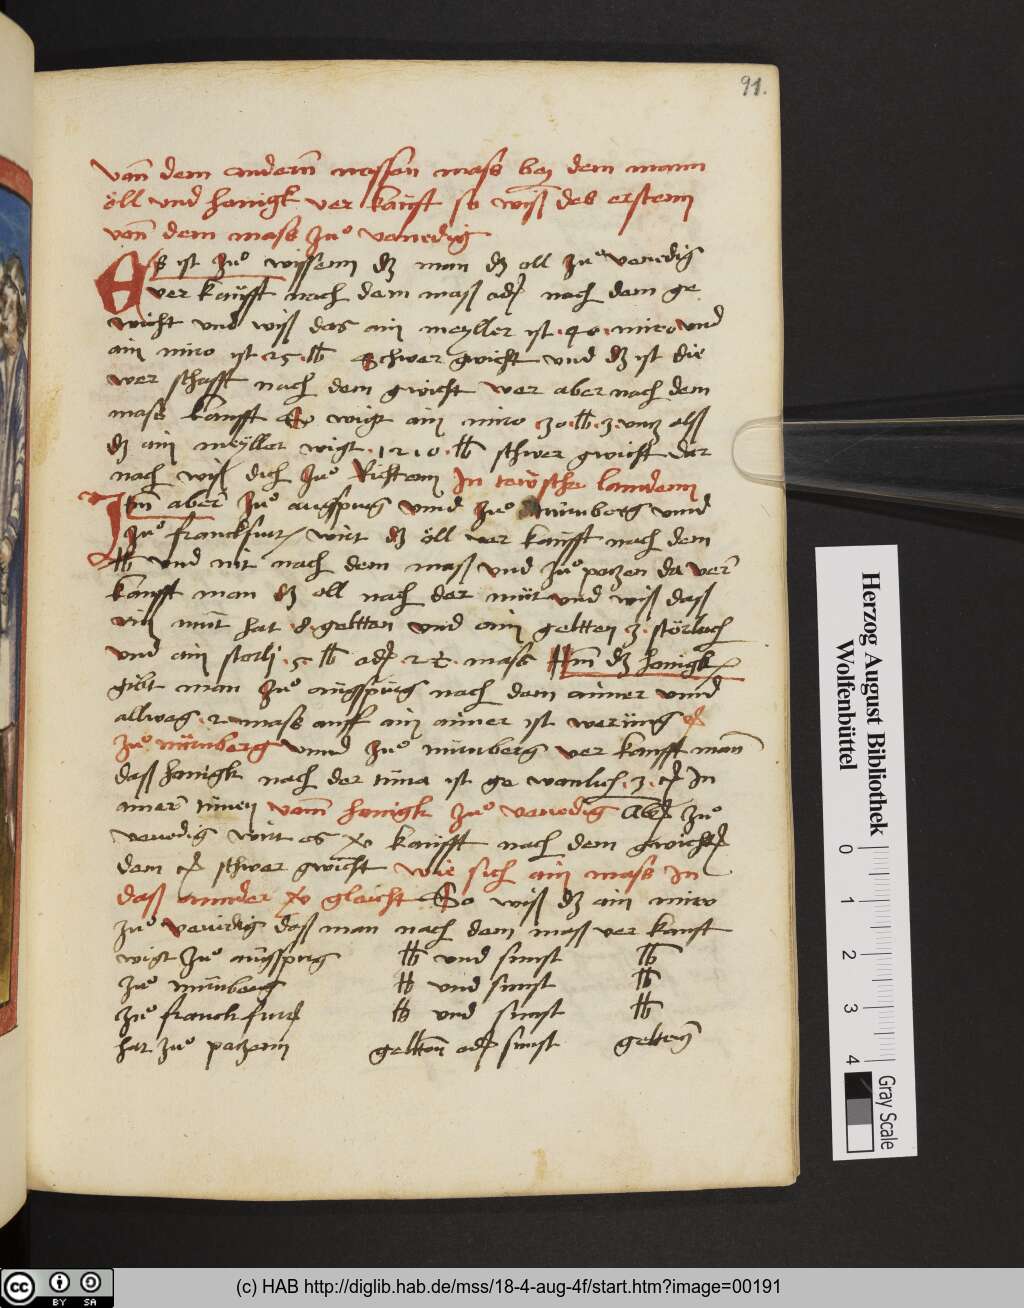 91.
Vonn dem anderen nassen mass bey dem mann
öll vnd honigk ver kaufft so wiß des ersten
von dem mass zuo venedig
ES ist zuo wissenn dz man dz oll zuo venedig
ver kaufft nach dem maß od nach dem ge
wicht vnd wiß das ain meyller ist .40. miro vnd
ain miro ist .25. lb schwer gwicht vnd dz ist die
wer schafft nach dem gwicht wer aber nach dem
mass kaufft So wigt ain miro .30. lb .3. vnz alß
dz ain meyller wigt .1210. lb schwer gwicht dar
nach wiß dich zuo Richtenn In tewtsche lanndenn
Itm aber zuo augspurg vnnd zuo nürmberg vnnd
zuo franckfurt wirt dz öll ver kaufft nach dem
lb vnd nit nach dem maß vnd zuo potzen da ver
kaufft man dz oll nach der müt vnd wiß dass
ain müt hat .8. geltten vnd ain geltten .3. störlach
vnd ain storli .5. lb od mass Itm dz honigk
gibt man zuo augspurg nach dem aimer vnnd
allweg .2. mass auff ain aimer ist werung
zuo nürmberg vnnd zuo nürmberg ver kaufft man
daß honigk nach der tuna ist ge wonlich .3. In
ainer tunen vonn honigk zuo venedig Aber zuo
venedig wirt es kaufft nach dem gwicht
dem schwer gwicht wie sich ain mass In
daß annder gleicht So wiß dz ain miro
zuo venedig daß man nach dem maß ver kauft
wigt zuo augspurg lb vnd sunst lb
zuo nürmberg lb vnd sunst lb
zuo franckfurt lb vnd sunst lb
hat zuo potzenn geltten od sunst geltten
Herzog August Bibliothek
Wolfenbüttel
0 1 2 3 4
Gray Scale
cc BY SA
(c) HAB http://diglib.hab.de/mss/18-4-aug-4f/start.htm?image=00191